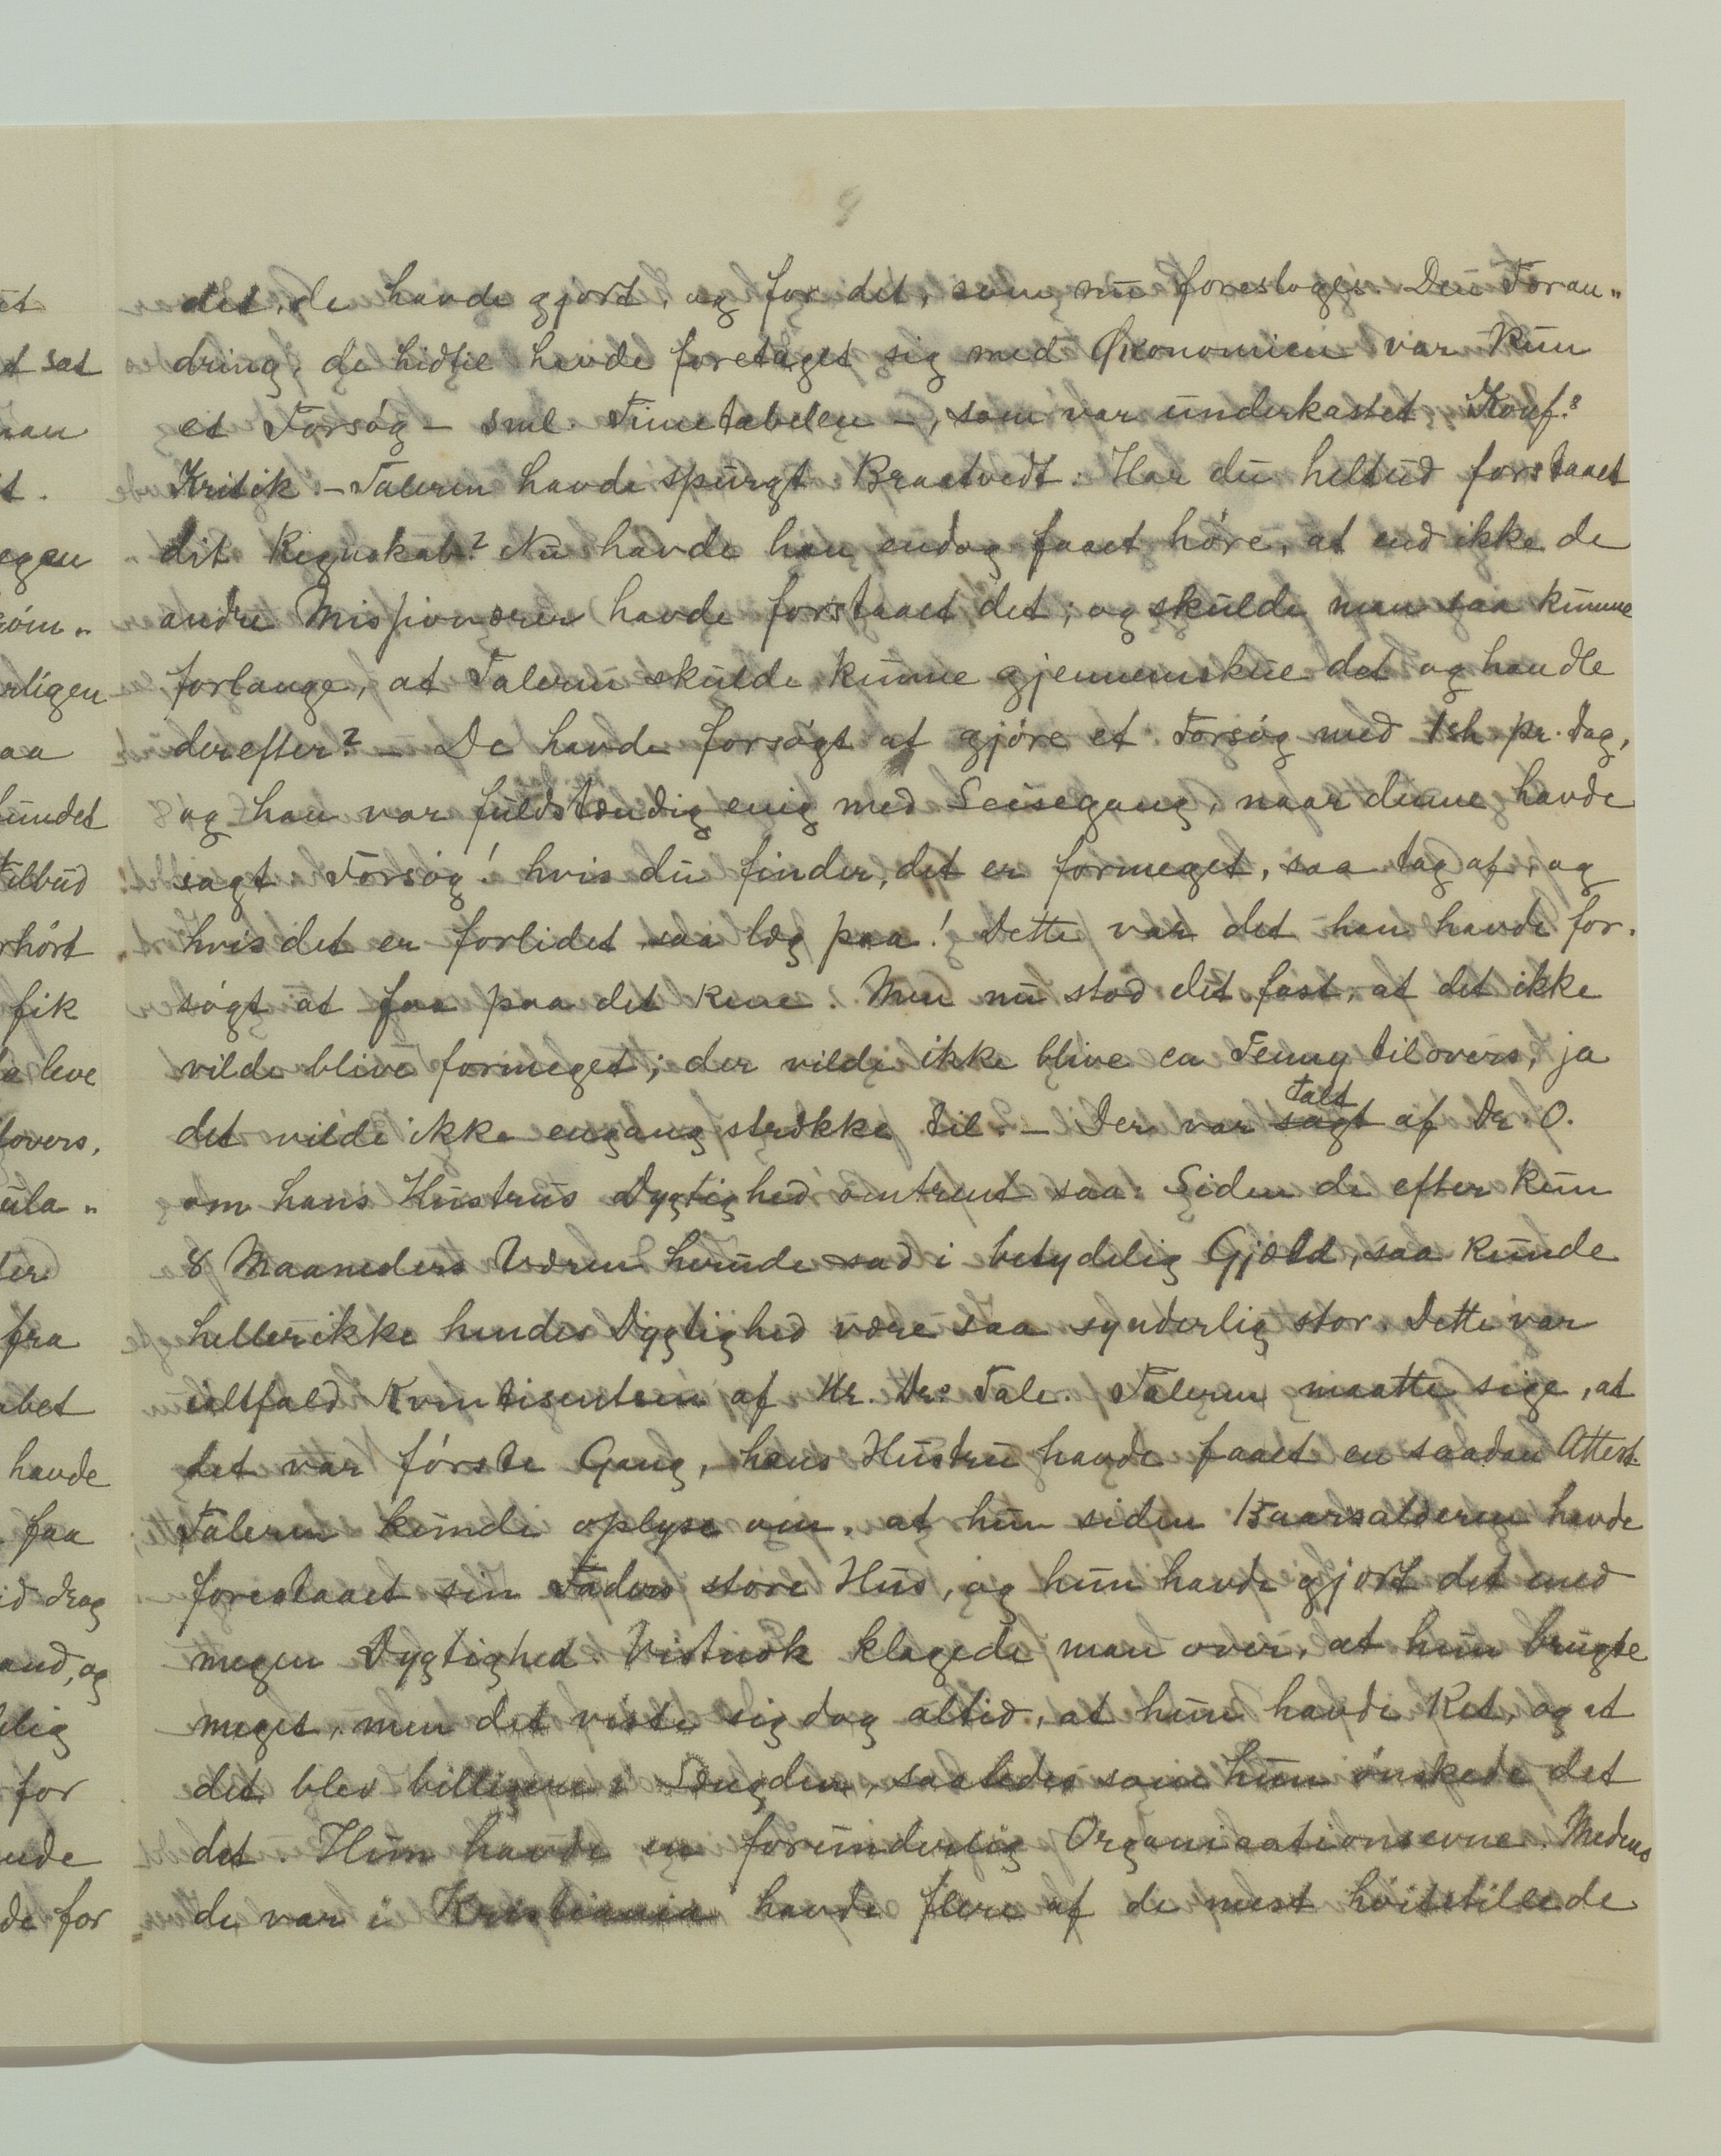 9
det, de havde gjort, og for det, som nu foresloges. Den Foran„
dring, de hidtil havde foretaget sig med Økonomien var kun
et Forsøg – sml. Timetabellen –, som var underkastet Konf.s
Kritik. – Taleren havde spurgt Braatvedt: Har du heltud forstaaet
dit Regnskab? Nu havde han endog faaet høre, at end ikke de
andre Missionærer havde forstaaet det; og skulde man saa kunne
forlange, at Taleren skulde kunne gjennemskue det og handle
derefter? – De havde forsøgt at gjøre et Forsøg med 1sh. pr. Dag,
og han var fuldstændig enig med Leisegang, naar denne havde
sagt: Forsøg! hvis du finder, det er formeget, saa tag af, og
hvis det er forlidet, saa læg paa! Dette var det han havde for.
søgt at faa paa det Rene. Men nu stod det fast, at det ikke
vilde blive formeget; der vilde ikke blive en Penny tilovers, ja
det vilde ikke engang strække til. – Der var sagt talt af Dr O.
om hans Hustrus Dygtighed omtrent saa: Siden de efter kun
8 Maaneders Væren herude sad i betydelig Gjæld, saa kunde
heller ikke hendes Dygtighed være saa synderlig stor. Dette var
ialtfald Kvintisentsen af Hr. Dr.s Tale. Taleren maatte sige, at
det var første Gang, hans Hustru havde faaet en saadan Attest.
Taleren kunde oplyse om, at hun siden 15aarsalderen havde
forestaaet sin Faders store Hus, og hun havde gjort det med
megen Dygtighed. Vistnok klagede man over, at hun brugte
meget, men det viste sig dog altid, at hun havde Ret, og at
det blev billigere i Længden, saaledes som hun ønskede det
det. Hun havde en forunderlig Organisationsevne. Medens
de var i Kristiania havde flere af de mest høitstillede